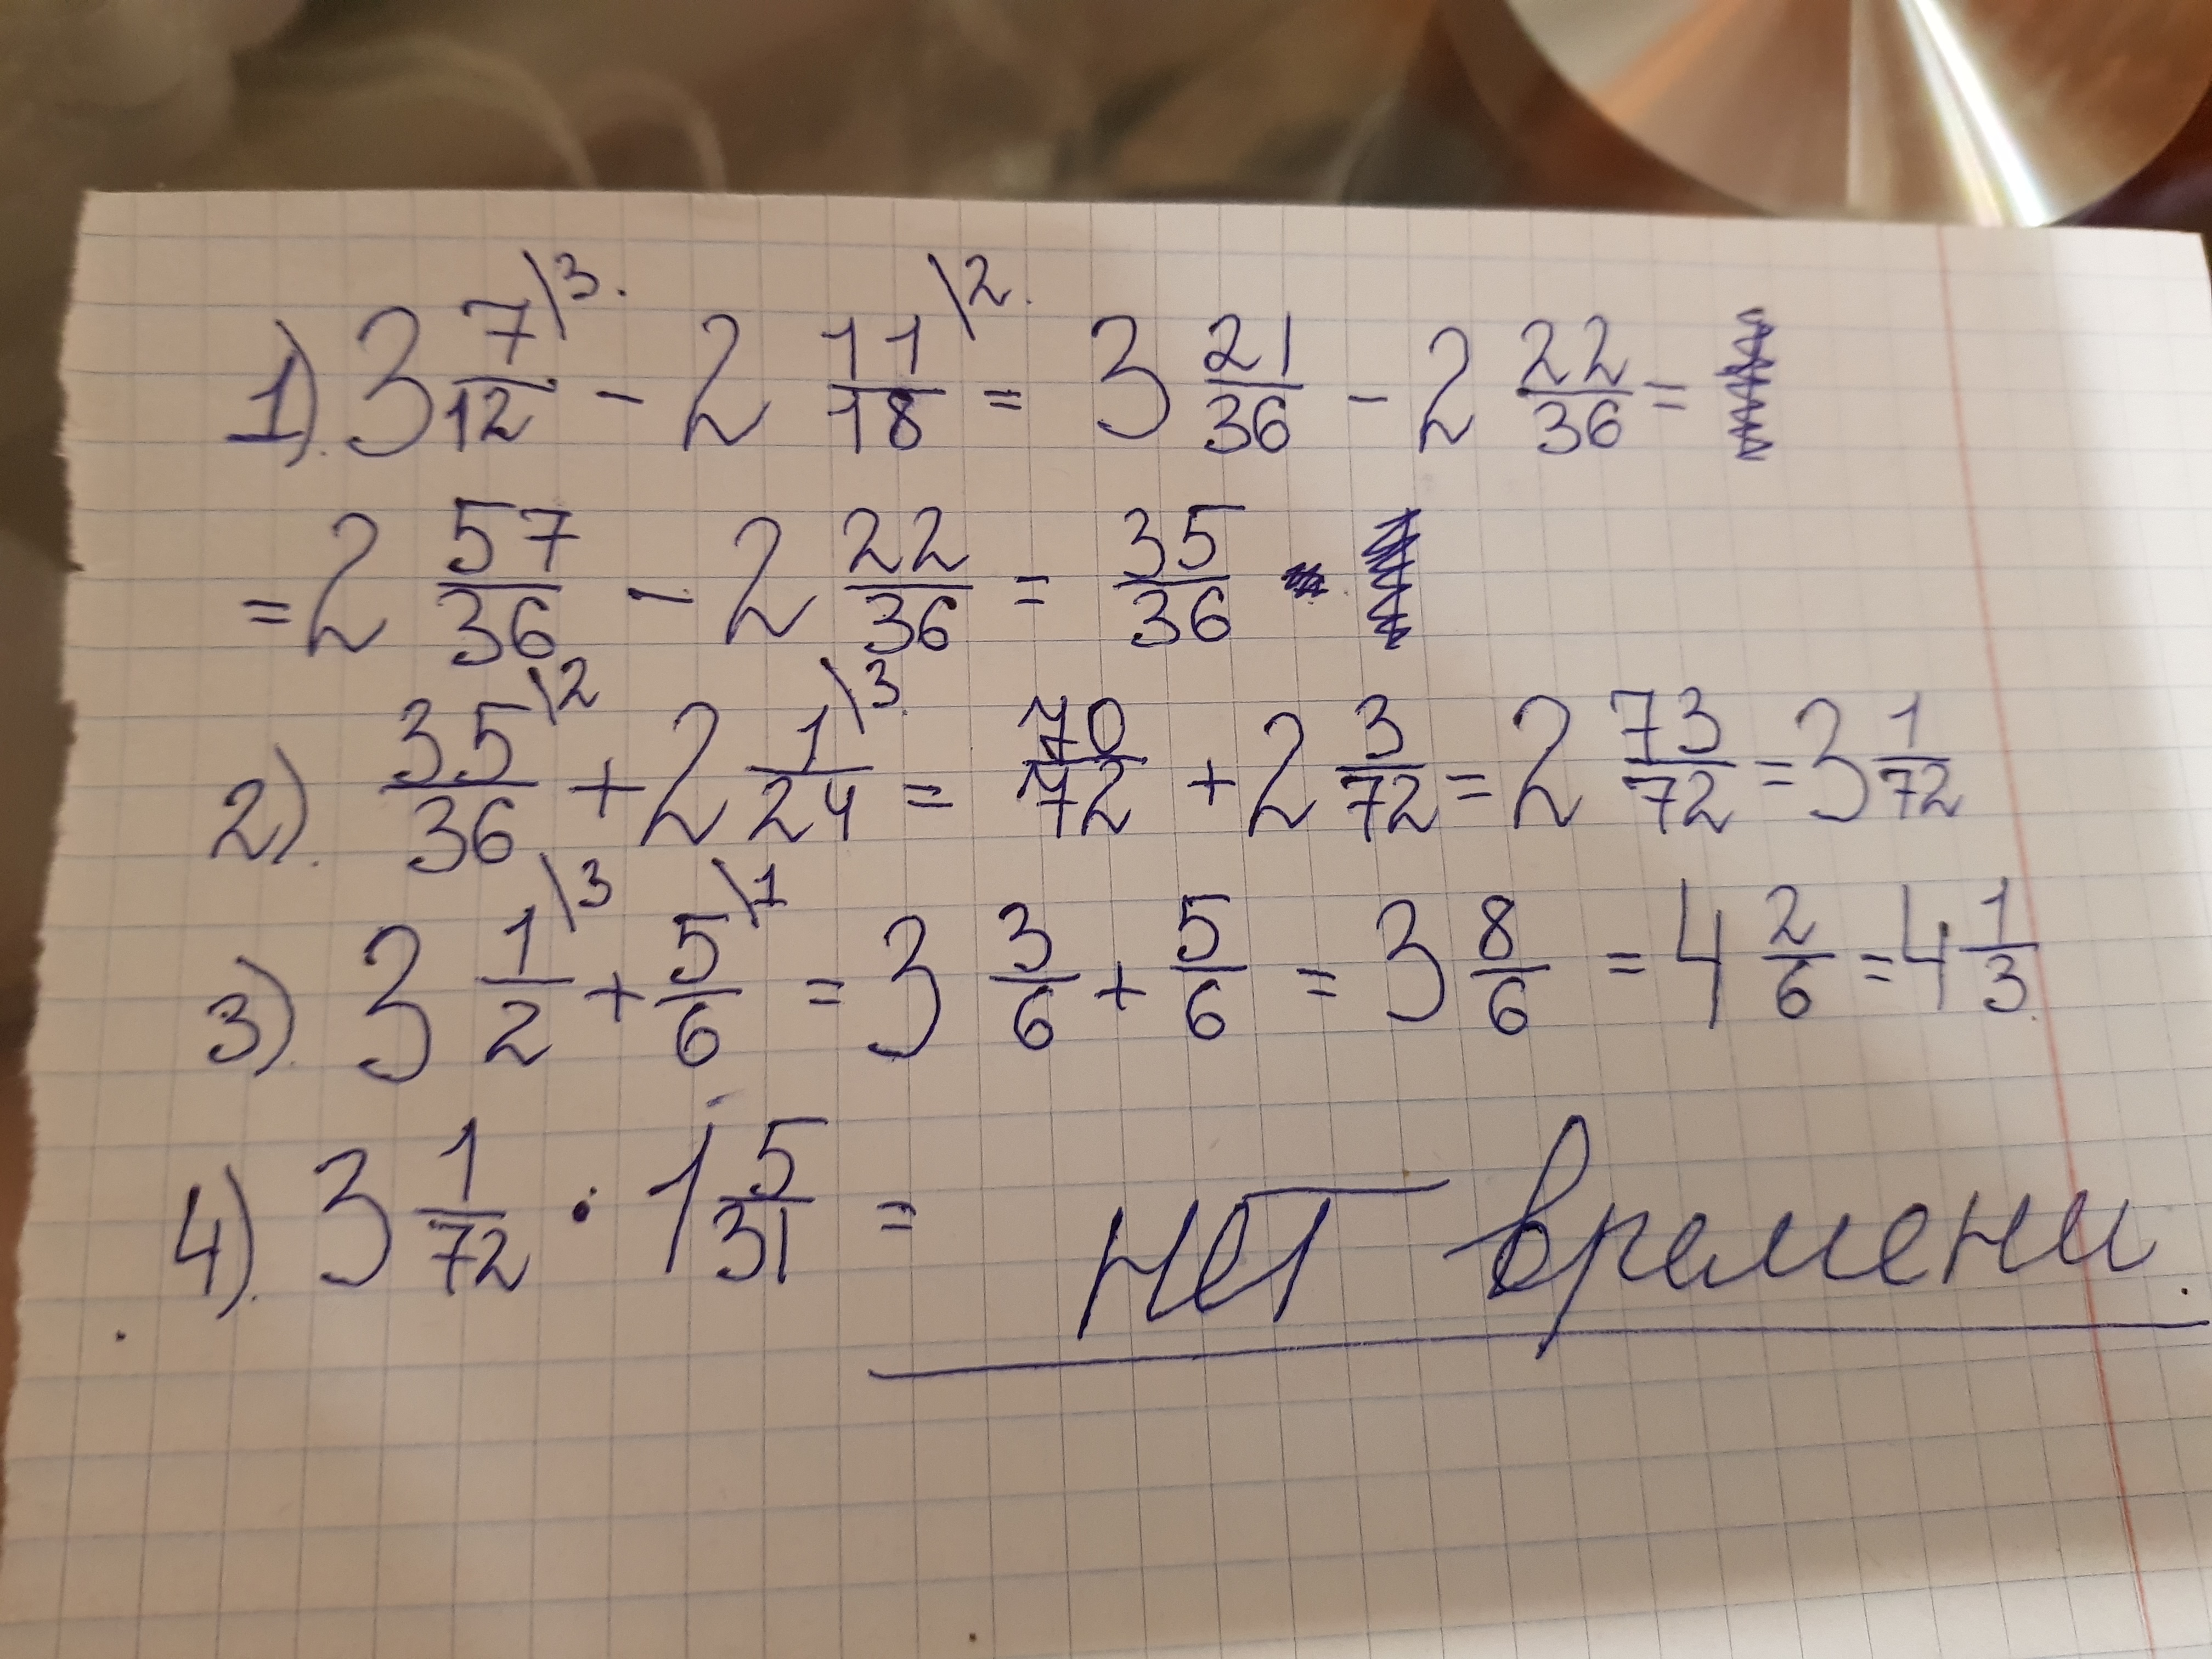 1). 3 7/12 \3. - 2 11/18 \2. = 3 21/36 - 2 22/36 =
= 2 57/36 - 2 22/36 = 35/36
2). 35/36 \2 + 2 1/24 \3. = 70/72 + 2 3/72 = 2 73/72 = 3 1/72
3). 3 1/2 \3 + 5/6 \1 = 3 3/6 + 5/6 = 3 8/6 = 4 2/6 = 4 1/3
4). 3 1/72 · 1 5/31 = нет времени.